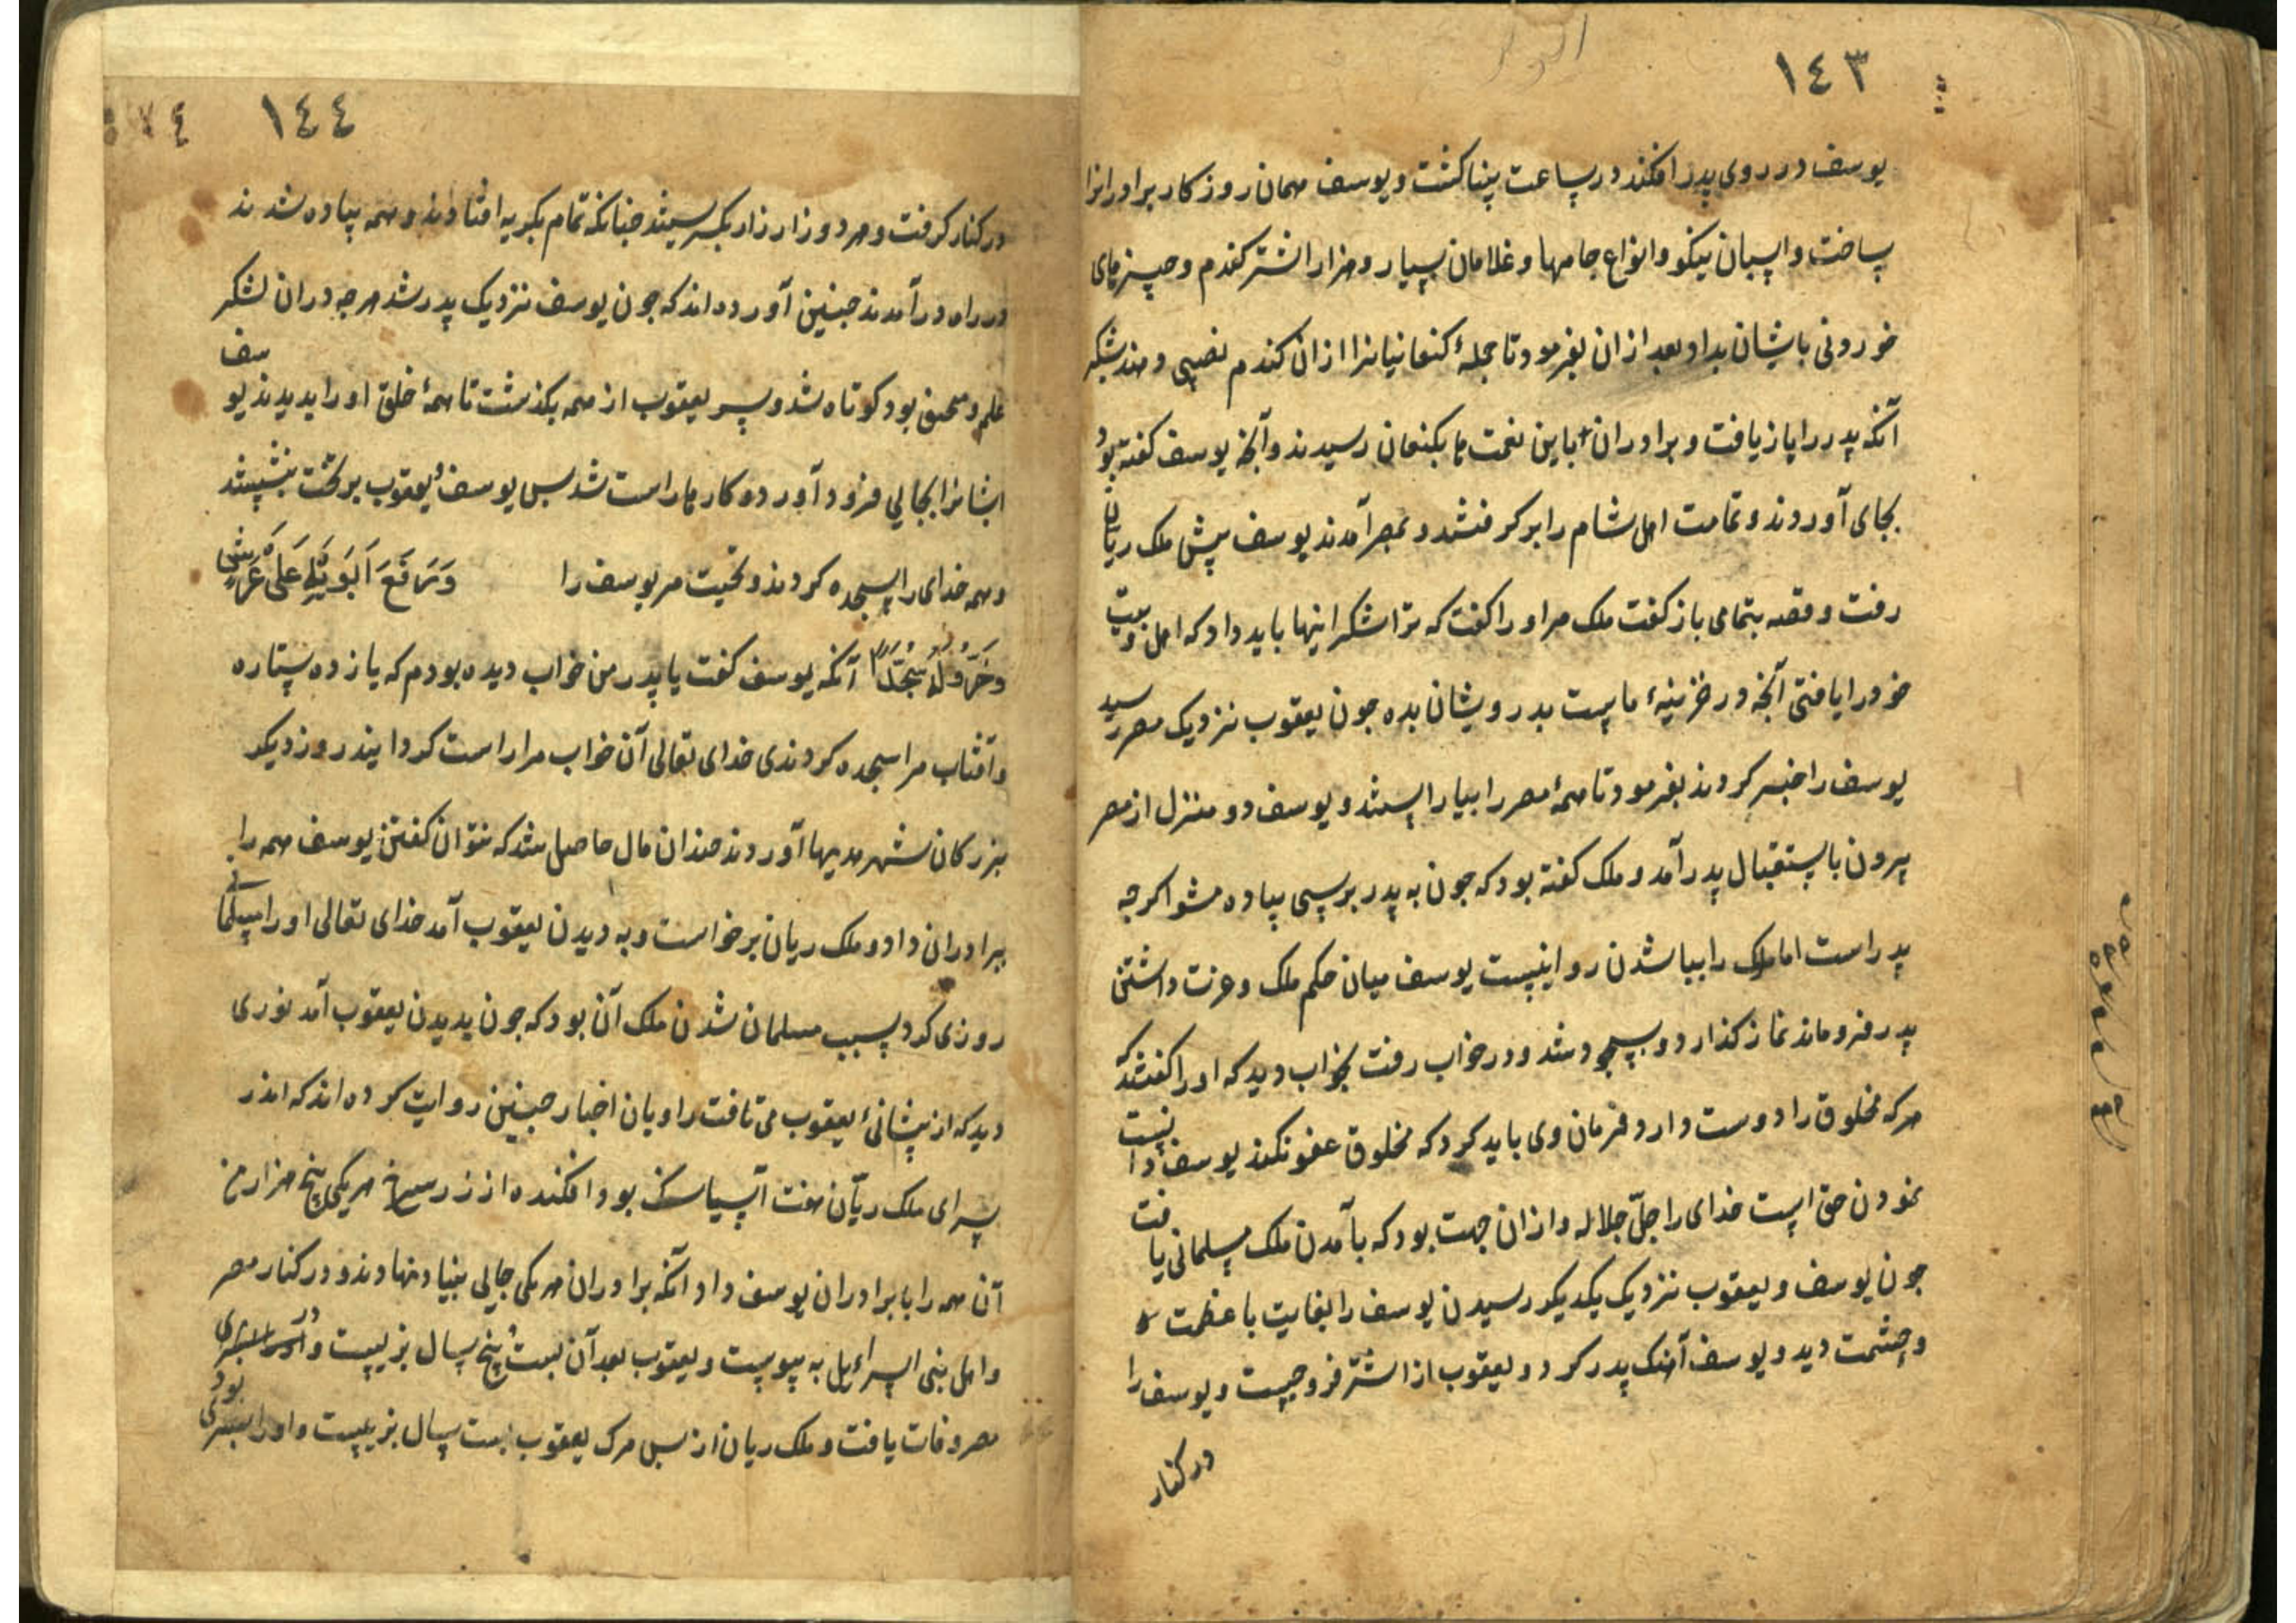 ١٤٣
یوسف در روی پدر افکند در ساعت بینا کشت و یوسف مهمان روز کار برادرانرا
بساخت و اسبان نیکو و انواع جامها و غلامان بسیار و هزار اشتر کندم و چیزهای
خوردنی بایشان بداد بعد از ان بفرمود تا جملهٔ کنعانیانرا ازان کندم نصیبی دهند بشکر
آنکه پدر را باز یافت و برادران باین نعمت ها بکنعان رسیدند و آنچه یوسف کفته بود
بجای آوردند و تمامت اهل شام را بر کرفتند و بمصر آمدند یوسف پیش ملک ریان
رفت و قصه بتمامی باز کفت ملک مر او را کفت که ترا شکر اینها باید داد که اهل بیت
خود را یافتی آنچه در خزینهٔ ماست بدرویشان بده جون یعقوب نزدیک مصر رسید
یوسف را خبر کردند بفرمود تا همهٔ مصر را بیاراستند و یوسف دو منزل از مصر
بیرون باستقبال پدر آمد و ملک کفته بود که جون به پدر برسی پیاده مشو اکرجه
پدر است اما ملک را پیا شدن روا نیست یوسف میان حکم ملک و عزت داشتن
پدر فرو ماند نماز کذارد و بسجود شد و در خواب رفت بخواب دید که او را کفتند که
هرکه مخلوق را دوست دارد فرمان وی باید کرد که مخلوق عفو نکند یوسف دانست
نمودن حق است خدای را جلّ جلاله و ازان جهت بود که بآمدن ملک مسلمانی یافت
جون یوسف و یعقوب نزدیک یکدیکر رسیدن یوسف را بغایت با عظمت
و حشمت دید و یوسف آهنک پدر کرد و یعقوب از اشتر فرو جست و یوسف را
در کنار
١٤٤
در کنار کرفت و هر دو زار زار بکریستند جنانکه تمام بکریه افتادند و همه پیاده شدند
در راه در آمدند جنین آورده اند که جون یوسف نزدیک پدر شد هرجه دران لشکر
علم و سنجق بود کوتاه شد و سر یعقوب از همه بکذشت تا همهٔ خلق او را بدیدند یوسف
ایشانرا بجایی فرود آورد و کارها راست شد بس یوسف و یعقوب بر تخت بنشستند
و همه خدای را سجده کردند و تحیت مر یوسف را وَرَفَعَ اَبَوَیْهِ عَلَی عَرْشِ
وَخَرُّوا لَهُ سُجَّدًا آنکه یوسف کفت یا پدر من خواب دیده بودم که یازده ستاره
و آفتاب مرا سجده کردندی خدای تعالی آن خواب مرا راست کردانید روز دیکر
بزرکان شهر هدیها آوردند جندان مال حاصل شد که نتوان کفتن یوسف همه را
ببرادران داد و ملک ریان برخواست و به دیدن یعقوب آمد خدای تعالی او را مسلمانی
روزی کرد سبب مسلمان شدن ملک آن بود که جون بدیدن یعقوب آمد نوری
دید که از پیشانیٔ یعقوب می تافت راویان اخبار جنین روایت کرده اند که اندر
سرای ملک ریّان هفت آسیا سنک بود افکنده از زر سرخ هر یکی پنج هزار من
آن همه را با برادران یوسف داد آنکه برادران هر یکی جایی بنیاد نهادند و در کنار مصر
و اهل بنی اسرائیل به پیوست و یعقوب بعد آن بیست و پنج سال بزیست و در
مصر وفات یافت و ملک ریان از بس مرک یعقوب بیست سال بزیست و او را بسری بود